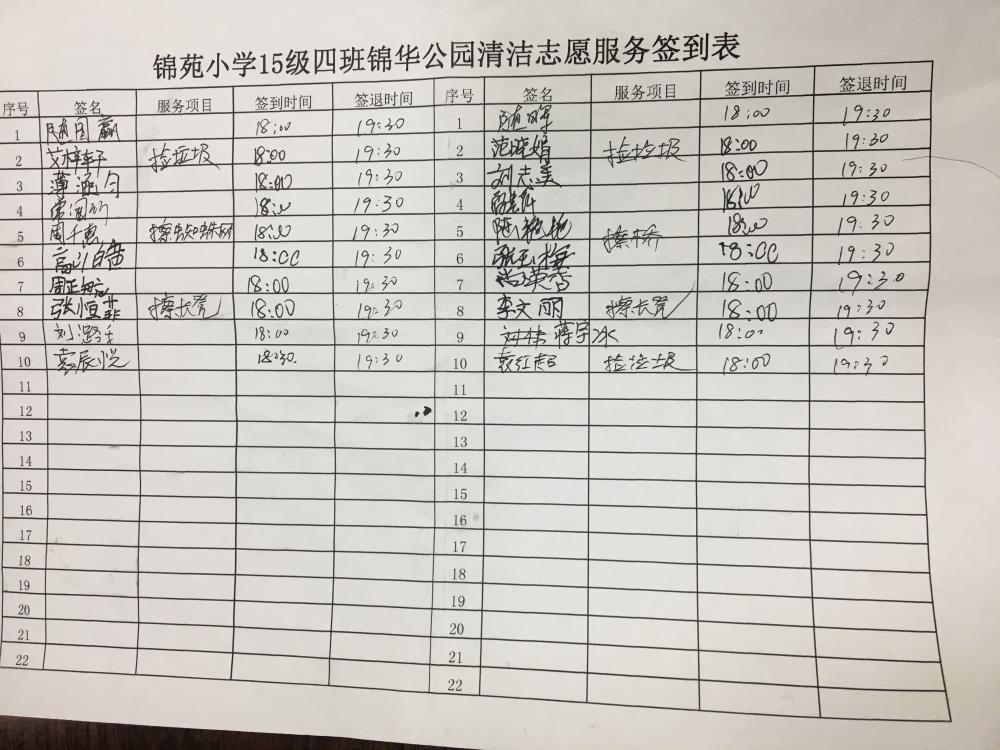 锦苑小学15级四班锦华公园清洁志愿服务签到表
序号 签名 服务项目 签到时间 签退时间 序号 签名 服务项目 签到时间 签退时间
1 18:00 19:30 1 18:00 19:30
2 捡垃圾 18:00 19:30 2 范晓娟 捡垃圾 18:00 19:30
3 薄涵匀 18:00 19:30 3 刘志美 18:00 19:30
4 18:00 19:30 4 18:00 19:30
5 周千惠 擦蜘蛛网 18:00 19:30 5 陈艳艳 擦桥 18:00 19:30
6 18:00 19:30 6 18:00 19:30
7 18:00 19:30 7 18:00 19:30
8 张恒菲 擦长凳 18:00 19:30 8 李文丽 擦长凳 18:00 19:30
9 18:00 19:30 9 18:00 19:30
10 袁辰悦 19:30 10 袁红超 捡垃圾 18:00 19:30
11 11
12 12
13 13
14 14
15 15
16 16
17 17
18 18
19 19
20 20
21 21
22 22